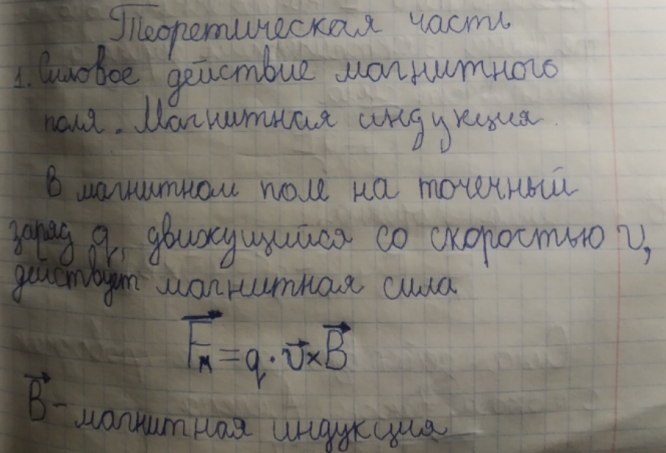 Теоретическая часть
1. Силовое действие магнитного
поля. Магнитная индукция.
В магнитном поле на точечный
заряд q, движущийся со скоростью v,
действует магнитная сила
F⃗м = q · v⃗ × B⃗
B⃗ – магнитная индукция